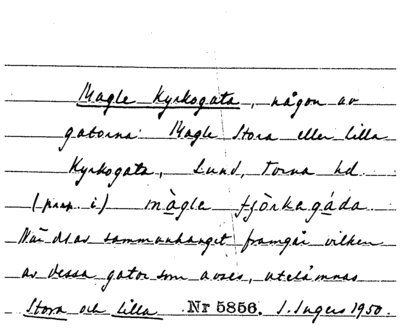 Magle Kyrkogata, någon av
gatorna: Magle Stora eller Lilla
Kyrkogata, Lund, Torna hd.
(prep. i) màgle fjörkagáda.
När det av sammanhanget framgår vilken
av dessa gator som avses, utelämnas
Stora och Lilla. Nr 5856. I. Ingers 1950.